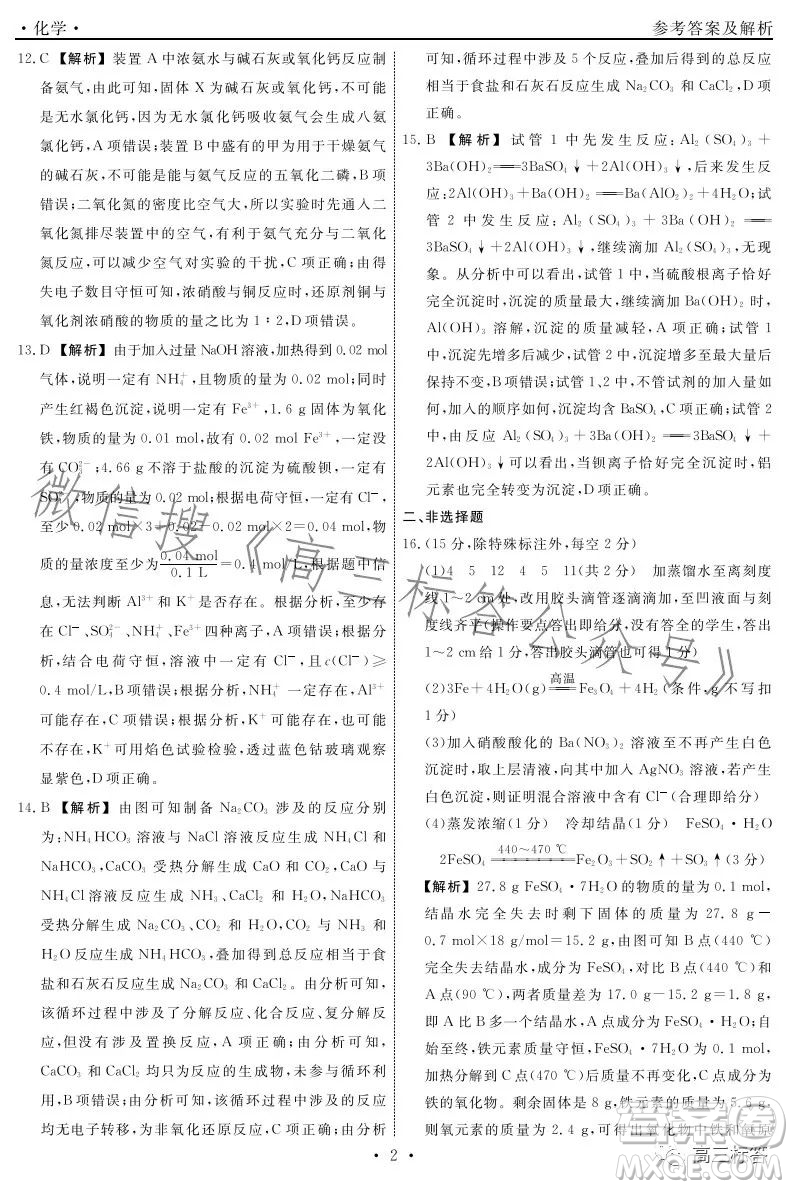 · 化学 ·
参考答案及解析
12. C 【解析】装置 A 中浓氨水与碱石灰或氧化钙反应制
备氨气,由此可知,固体 X 为碱石灰或氧化钙,不可能
是无水氯化钙,因为无水氯化钙吸收氨气生成八氨
氯化钙,A 项错误;装置 B 中盛有的甲为干燥氨气
的碱石灰,不可能是与氨气反应的五氧化二磷,B 项
错误;二氧化氮的密度比空气大,所以实验时先通入二
氧化氮排尽装置中的空气,有利于氨气充分与二氧化
氮反应,可以减少空气对实验的干扰,C 项正确;由得
失电子数目守恒可知,浓硝酸与铜反应时,还原剂铜与
氧化剂浓硝酸的物质的量之比为 1∶2,D 项错误。
13. D 【解析】由于加入过量 NaOH 溶液,加热得到 0.02 mol
气体,说明一定有 NH₄⁺,且物质的量为 0.02 mol;同时
产生红褐色沉淀,说明一定有 Fe³⁺,1.6 g 固体为氧化
铁,物质的量为 0.01 mol,故有 0.02 mol Fe³⁺,一定没
有 CO₃²⁻;4.66 g 不溶于盐酸的沉淀为硫酸钡,一定有
SO₄²⁻,物质的量为 0.02 mol;根据电荷守恒,一定有 Cl⁻,
至少 0.02 mol×3+0.02−0.02 mol×2=0.04 mol,物
质的量浓度至少为 0.04 mol/0.1 L=0.4 mol/L,根据题中信
息,无法判断 Al³⁺ 和 K⁺ 是否存在。至少存
在 Cl⁻、SO₄²⁻、NH₄⁺、Fe³⁺ 四种离子,A 项错误;根据分
析,结合电荷守恒,一定存在 Cl⁻,且 c(Cl⁻)≥
0.4 mol/L,B 项错误;根据分析,NH₄⁺ 一定存在,Al³⁺
可能存在,C 项错误;根据分析,Na⁺、K⁺ 可能存在也可能
不存在,K⁺ 可用焰色试验检验,透过蓝色钴玻璃观察
显紫色,D 项正确。
14. B 【解析】由图可知制备 Na₂CO₃ 涉及的反应分别
为:NH₄HCO₃ 溶液与 NaCl 溶液反应生成 NH₄Cl 和
NaHCO₃,CaCO₃ 受热分解生成 CaO 和 CO₂,CaO 与
NH₄Cl 溶液反应生成 NH₃、CaCl₂ 和 H₂O,NaHCO₃
受热分解生成 Na₂CO₃、CO₂ 和 H₂O,CO₂、NH₃ 和
H₂O 反应生成 NH₄HCO₃,叠加得总反应相当于
食盐和石灰石反应生成 Na₂CO₃ 和 CaCl₂。由分析可知,
该循环过程中涉及了分解反应、化合反应、复分解反
应,但没有涉及置换反应,A 项正确;由分析可知,
CaCO₃ 和 CaCl₂ 均只为反应的生成物,未参与循环利
用,B 项错误;循环过程中所有元素的化合价均未发
生变化,均为非氧化还原反应,C 项正确;由分析
可知,循环过程中涉及 5 个反应,叠加后得总反应
相当于食盐和石灰石反应生成 Na₂CO₃ 和 CaCl₂,D 项
正确。
15. B 【解析】试管 1 中先发生反应:Al₂(SO₄)₃ +
3Ba(OH)₂══3BaSO₄↓+2Al(OH)₃↓,后来发生反
应:2Al(OH)₃+Ba(OH)₂══Ba(AlO₂)₂+4H₂O;试
管 2 中发生反应:Al₂(SO₄)₃ + 3Ba(OH)₂══
3BaSO₄↓+2Al(OH)₃↓,继续滴加,无现
象。从分析中可以看出,试管 1 中,当硫酸根离子恰好
完全沉淀时,沉淀的质量最大,继续滴加 Ba(OH)₂ 时,
Al(OH)₃ 溶解,沉淀的质量减轻,A 项正确;试管 1 中,
沉淀先增多后减少,试管 2 中,沉淀质量增加至最大后
保持不变,B 项错误;试管 1、2 中,不管试剂的加入量
及加入的顺序如何,沉淀均含 BaSO₄,C 项正确;由分
析可以看出,当钡离子完全转变为沉淀时,铝
元素也完全转变为沉淀,D 项正确。
二、非选择题
16. (15 分,除特殊标注外,每空 2 分)
(1)4 5 12 4 5 11(共 2 分) 加蒸馏水至离刻度
线 1~2 cm 处,改用胶头滴管逐滴滴加,至凹液面与刻
度线齐平(操作要点答出即给分,没有答全的学生,答出
1~2 cm 给 1 分,答出胶头滴管也可得 1 分)
(2)3Fe+4H₂O(g) 高温══ Fe₃O₄+4H₂(条件,g 不写扣
1 分)
(3)加入硝酸酸化的 Ba(NO₃)₂ 溶液至不再产生白色
沉淀时,取上层清液,向其中加入 AgNO₃ 溶液,产生白色
沉淀,则证明混合溶液中含有 Cl⁻
(4)蒸发浓缩(1 分) 冷却结晶(1 分) FeSO₄·H₂O
2FeSO₄ 440~470 ℃══ Fe₂O₃+SO₂↑+SO₃↑(3 分)
【解析】27.8 g FeSO₄·7H₂O 的物质的量为 0.1 mol,
结晶水完全失去时剩下固体的质量为 27.8 g−
0.7 mol×18 g/mol=15.2 g,由图可知 B 点(440 ℃)
时结晶水完全失去,成分为 FeSO₄,对比 B 点(440 ℃)
与 A 点(90 ℃),两者质量为 17.0 g−15.2 g=1.8 g,
即 A 比 B 多一个结晶水,A 点成分为 FeSO₄·H₂O。
自始至终,铁元素质量守恒,FeSO₄·7H₂O 为 0.1 mol,
C 点(470 ℃)后质量不再变化,C 点成分为
铁的氧化物。剩余固体是 8 g,铁元素的质量为 5.6 g,
则氧元素的质量为 2.4 g,可得出氧化物中铁和氧原
· 2 ·
微信搜《高三标答公众号》
高三标答
答案圈
MXQE.COM